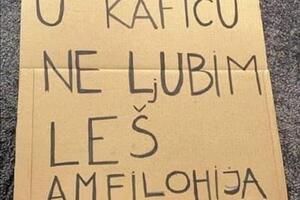 U KAFIĆU
NE LJUBIM
LEŠ
AMFILOHIJA